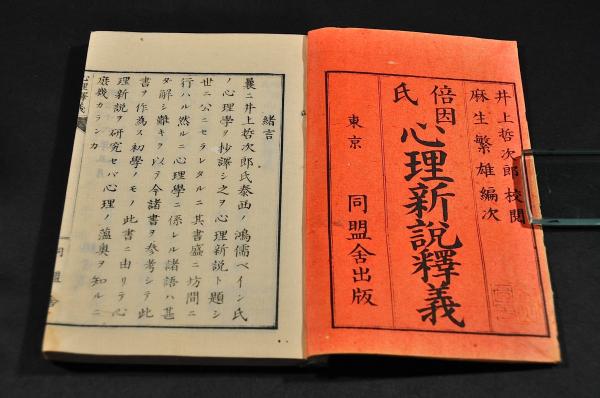 井上哲次郎校閲
麻生繁雄編次
倍因氏
心理新説釋義
東京
同盟舎出版
緒言
曩ニ井上哲次郎氏泰西ノ鴻儒ベイン氏
ノ心理學ヲ抄譯シ之ヲ心理新説ト題シ
世ニ公ニセラレタルニ其書盛ニ坊間ニ
行ハル然ルニ心理學ニ係レル諸語ハ甚
タ解シ難キヲ以テ今諸書ヲ參考シテ此
書ヲ作為ス初學ノモノ此書ニ由リテ心
理新説ヲ研究セバ心理ノ薀奥ヲ知ルニ
庶幾カランカ
心理釋義
同盟舎